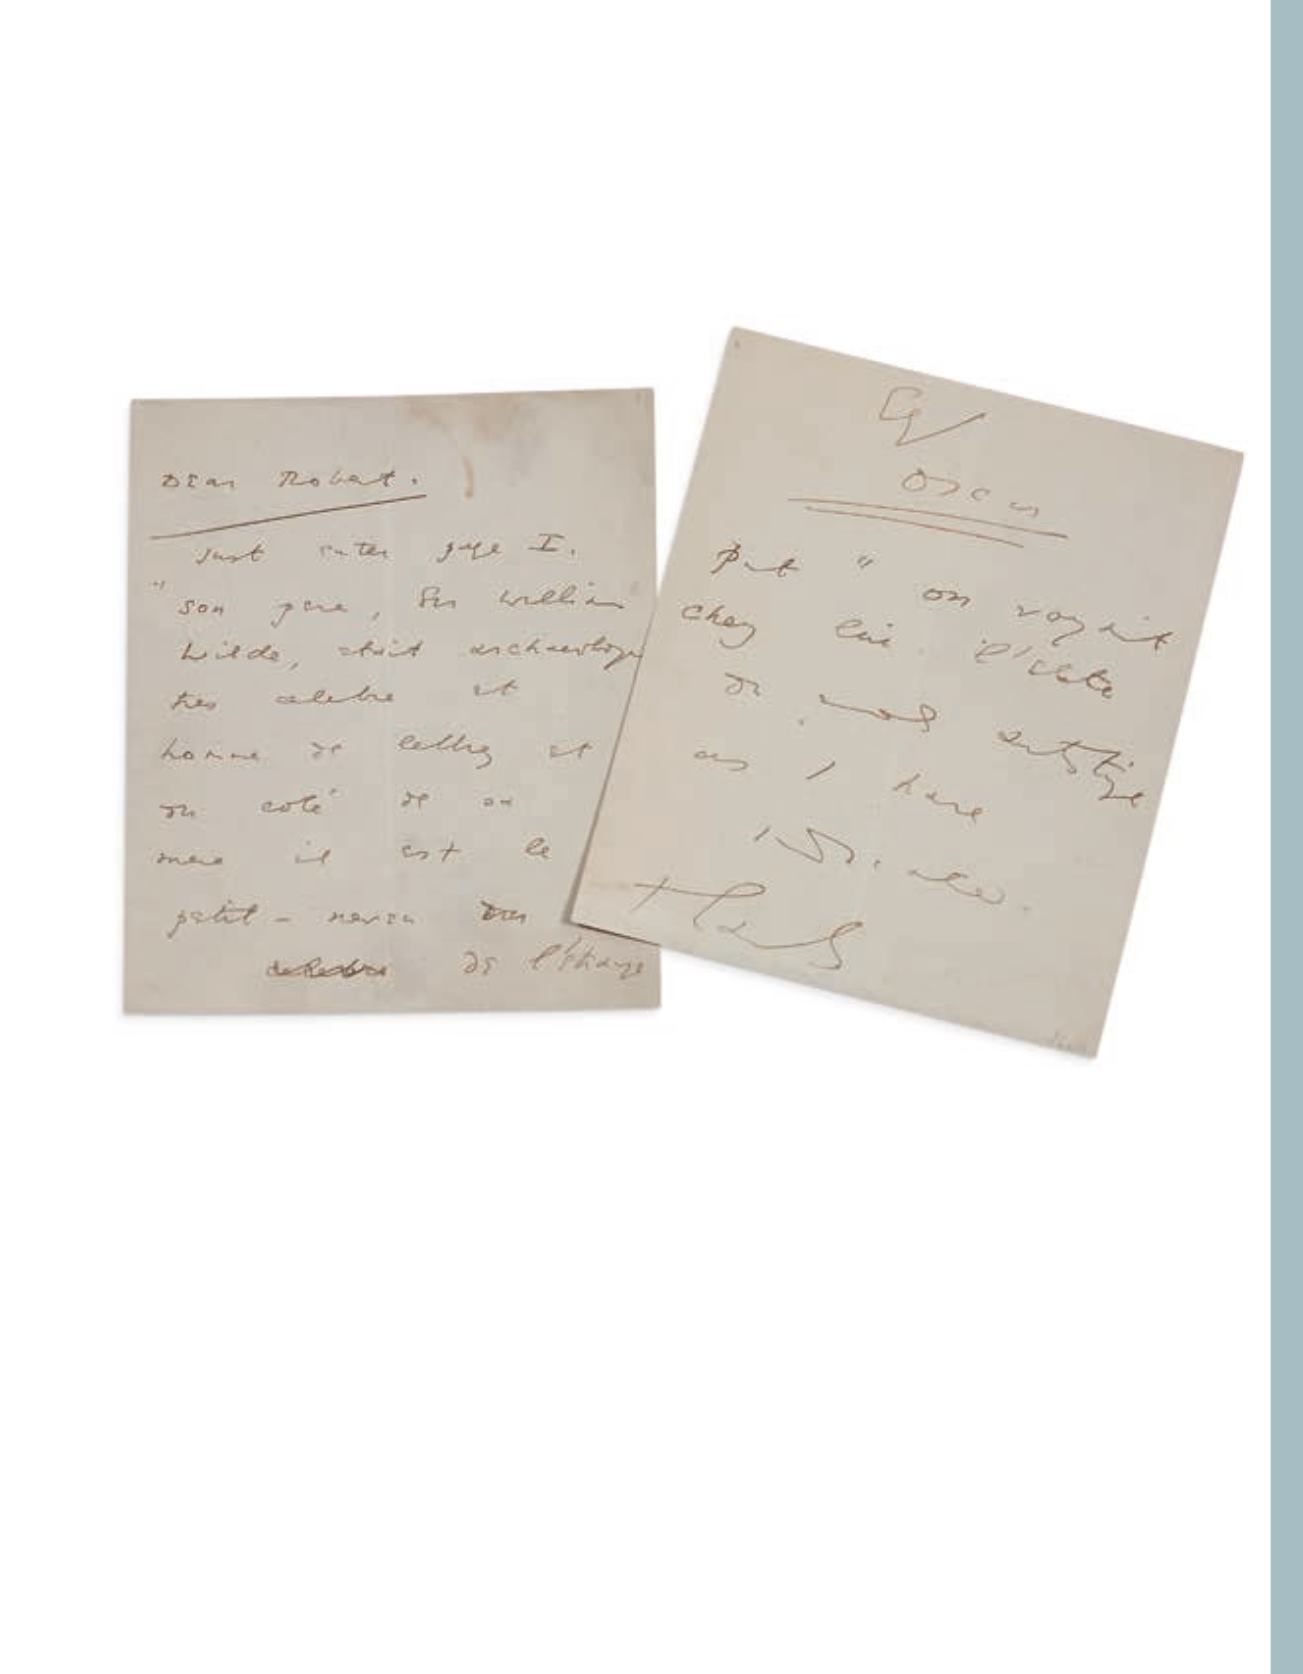 Dear Robert.
Just enter page I.
"son pere, Sir William
Wilde, etait archaeologue
tres celebre et
homme de lettres et
du coté de sa
mere il est le
petit-neveu
de l'étrange
Oscar
Put " on voyait
chez lui l'élite
du
as I have